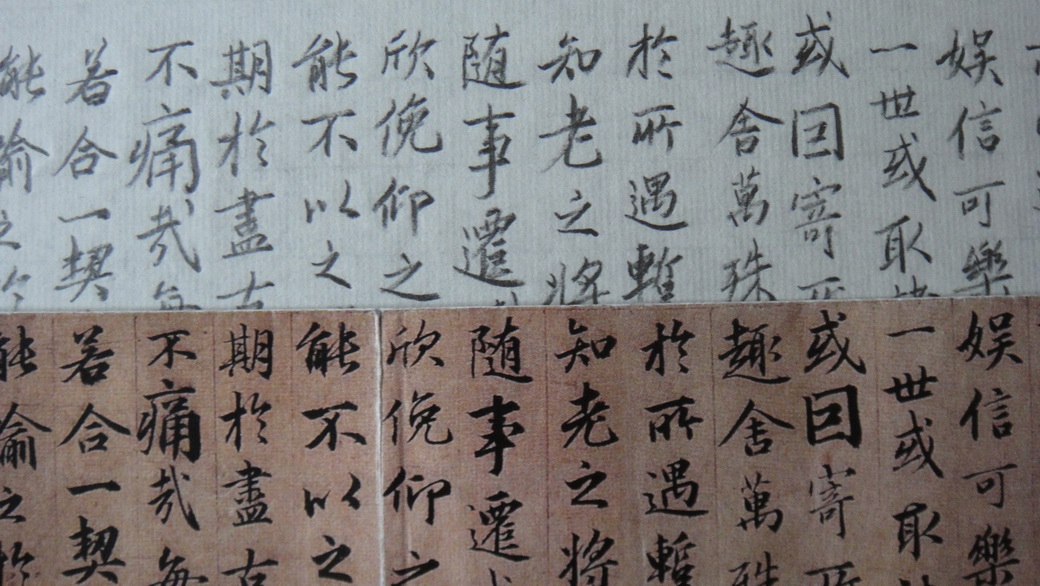 娛信可樂
一世或取諸
或因寄所
趣舍萬殊
於所遇暫
知老之將
随事遷
欣俛仰之
能不以之
期於盡古
不痛哉每
若合一契
能喻之於
娛信可樂
一世或取
或因寄所
趣舍萬殊
於所遇暫
知老之將
随事遷
欣俛仰之
能不以之
期於盡古
不痛哉每
若合一契
能喻之於